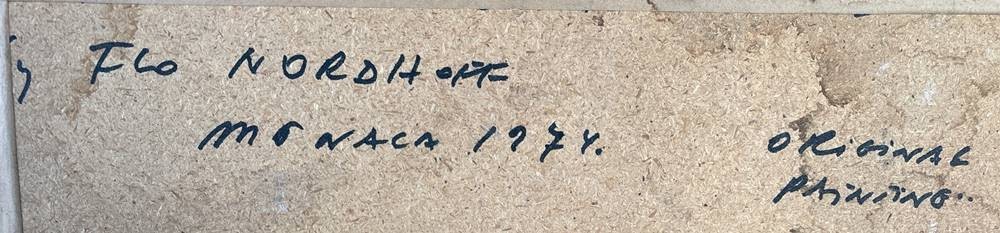 y FLO NORDHOFF
MONACA 1974.
ORiGiNAL
PAiNTiNG..